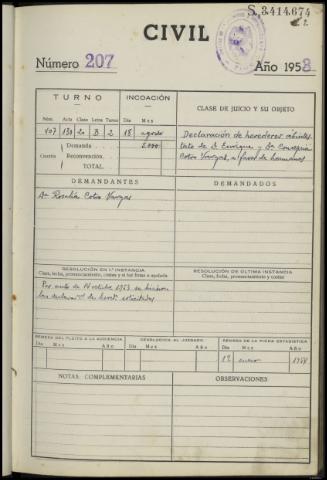 S. 3.414.674
CIVIL
Número 207
Año 1958
TURNO
INCOACIÓN
CLASE DE JUICIO Y SU OBJETO
Núm. Acta Clase Letra Turno Día Mes
107 130 2ª B 2 18 agosto
Declaración de herederos abintes-
tato de D. Enrique y Dª Concepción
Cotro Vargas, a favor de hermanos
Cuantía
Demanda 2.000
Reconvención.
TOTAL.
DEMANDANTES
DEMANDADOS
Dª Rosalía Cotro Vargas
RESOLUCIÓN EN 1.ª INSTANCIA
Clase, fecha, pronunciamiento, costas y si fué firme o apelada
RESOLUCIÓN DE ÚLTIMA INSTANCIA
Clase, fecha, pronunciamiento y costas
Por auto de 14 octubre 1958 se hicieron
las declaraciones de hered. solicitadas
REMESA DEL PLEITO A LA AUDIENCIA
DEVOLUCIÓN AL JUZGADO
REMESA DE LA FICHA ESTADÍSTICA
Día Mes Año
Día Mes Año
Día Mes Año
enero
NOTAS COMPLEMENTARIAS
OBSERVACIONES